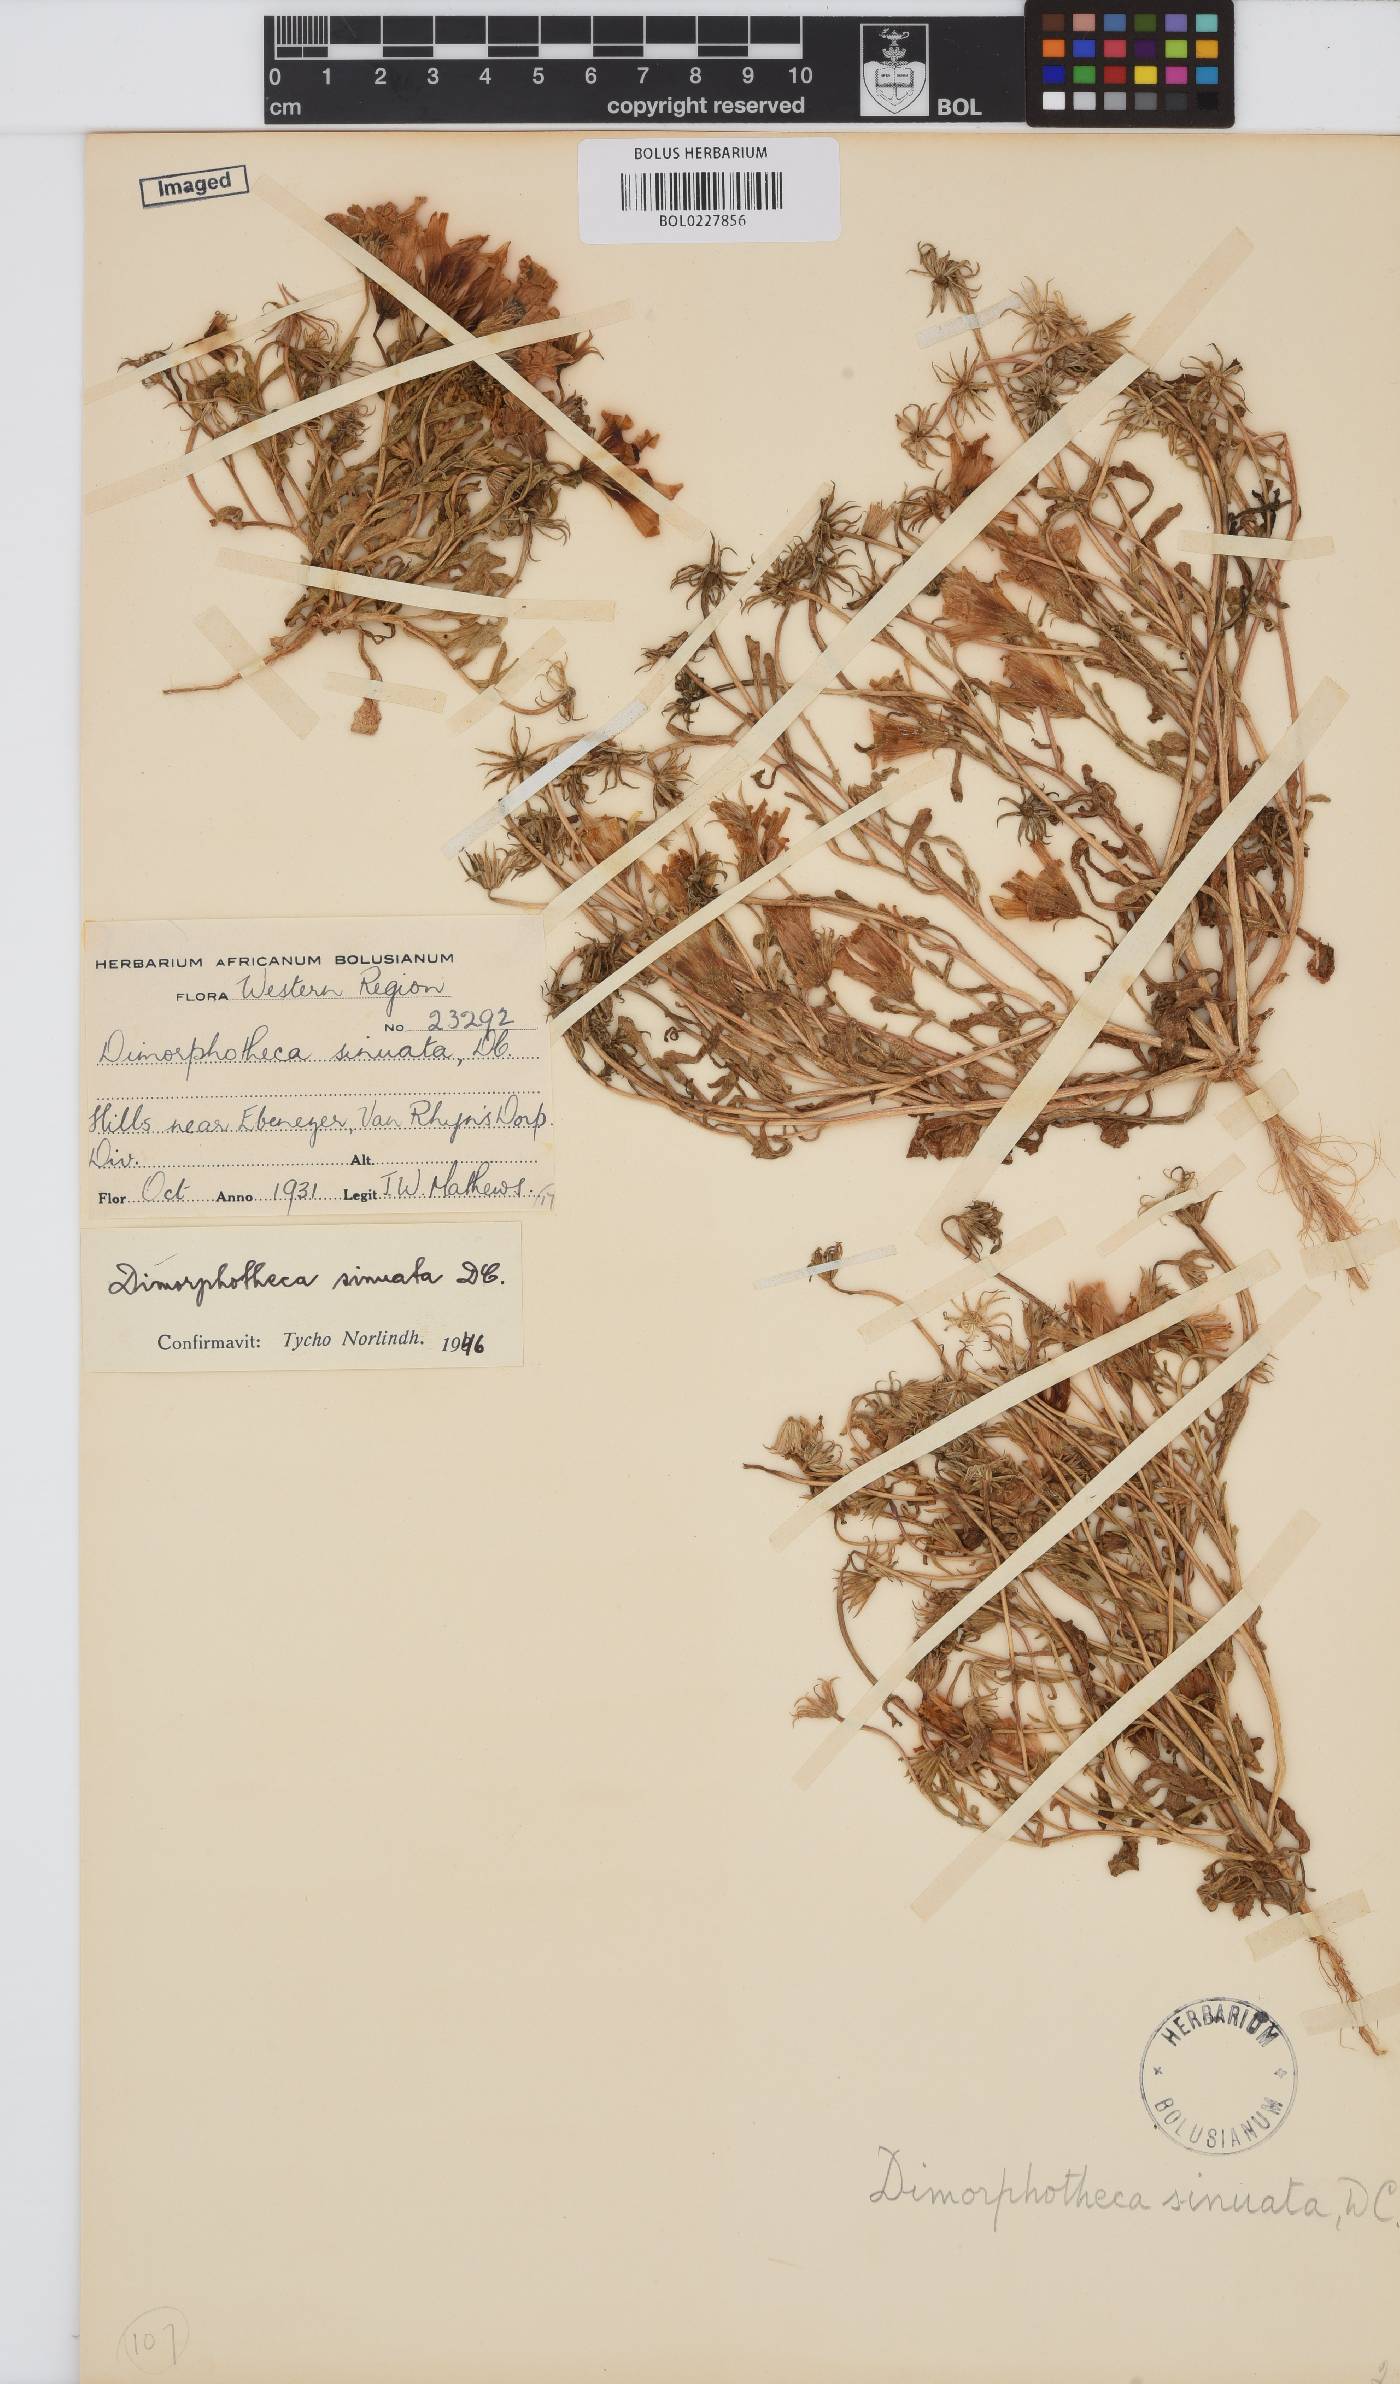 0 1 2 3 4 5 6 7 8 9 10
cm copyright reserved BOL
BOLUS HERBARIUM
BOL0227856
Imaged
HERBARIUM AFRICANUM BOLUSIANUM
FLORA Western Region
No 23292
Dimorphotheca sinuata, DC.
Hills near Ebenezer, Van Rhyn's Dorp.
Div. Alt.
Flor Oct Anno 1931 Legit I W Mathews.
Dimorphotheca sinuata DC.
Confirmavit: Tycho Norlindh. 1946
HERBARIUM
BOLUSIANUM
Dimorphotheca sinuata, DC.
107